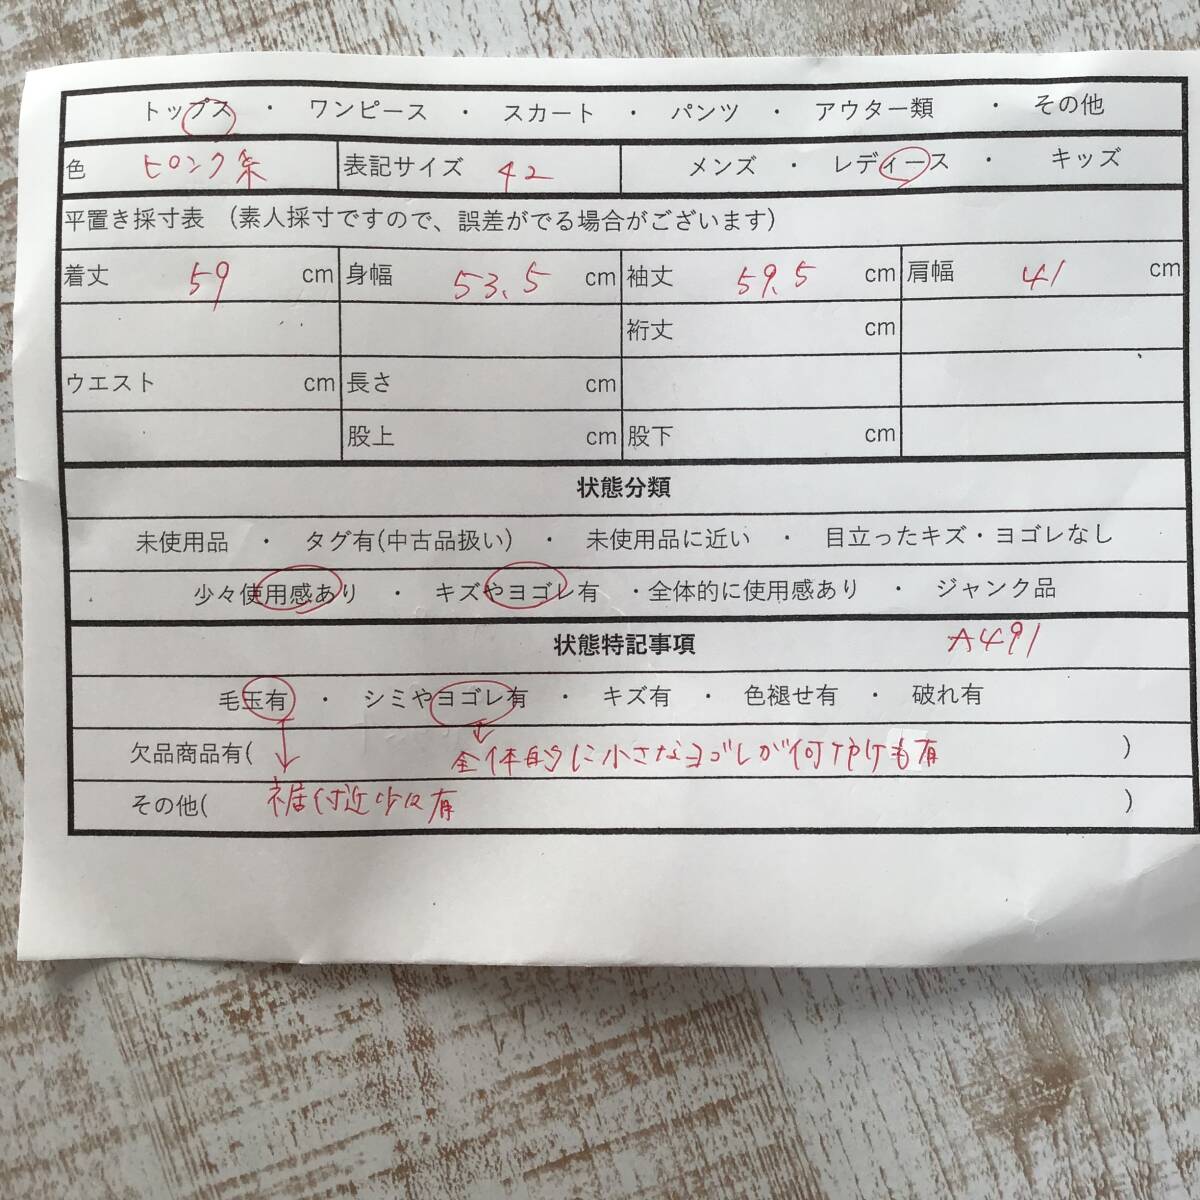 トップス ・ ワンピース ・ スカート ・ パンツ ・ アウター類 ・ その他
色 ピンク系 表記サイズ 42 メンズ ・ レディース ・ キッズ
平置き採寸表 (素人採寸ですので、誤差がでる場合がございます)
着丈 59 cm 身幅 53.5 cm 袖丈 59.5 cm 肩幅 41 cm
裄丈 cm
ウエスト cm 長さ cm
股上 cm 股下 cm
状態分類
未使用品 ・ タグ有(中古品扱い) ・ 未使用品に近い ・ 目立ったキズ・ヨゴレなし
少々使用感あり ・ キズやヨゴレ有 ・全体的に使用感あり ・ ジャンク品
状態特記事項 A491
毛玉有 ・ シミやヨゴレ有 ・ キズ有 ・ 色褪せ有 ・ 破れ有
欠品商品有( 全体的に小さなヨゴレが何ヶ所も有 )
その他( 裾付近少々有 )